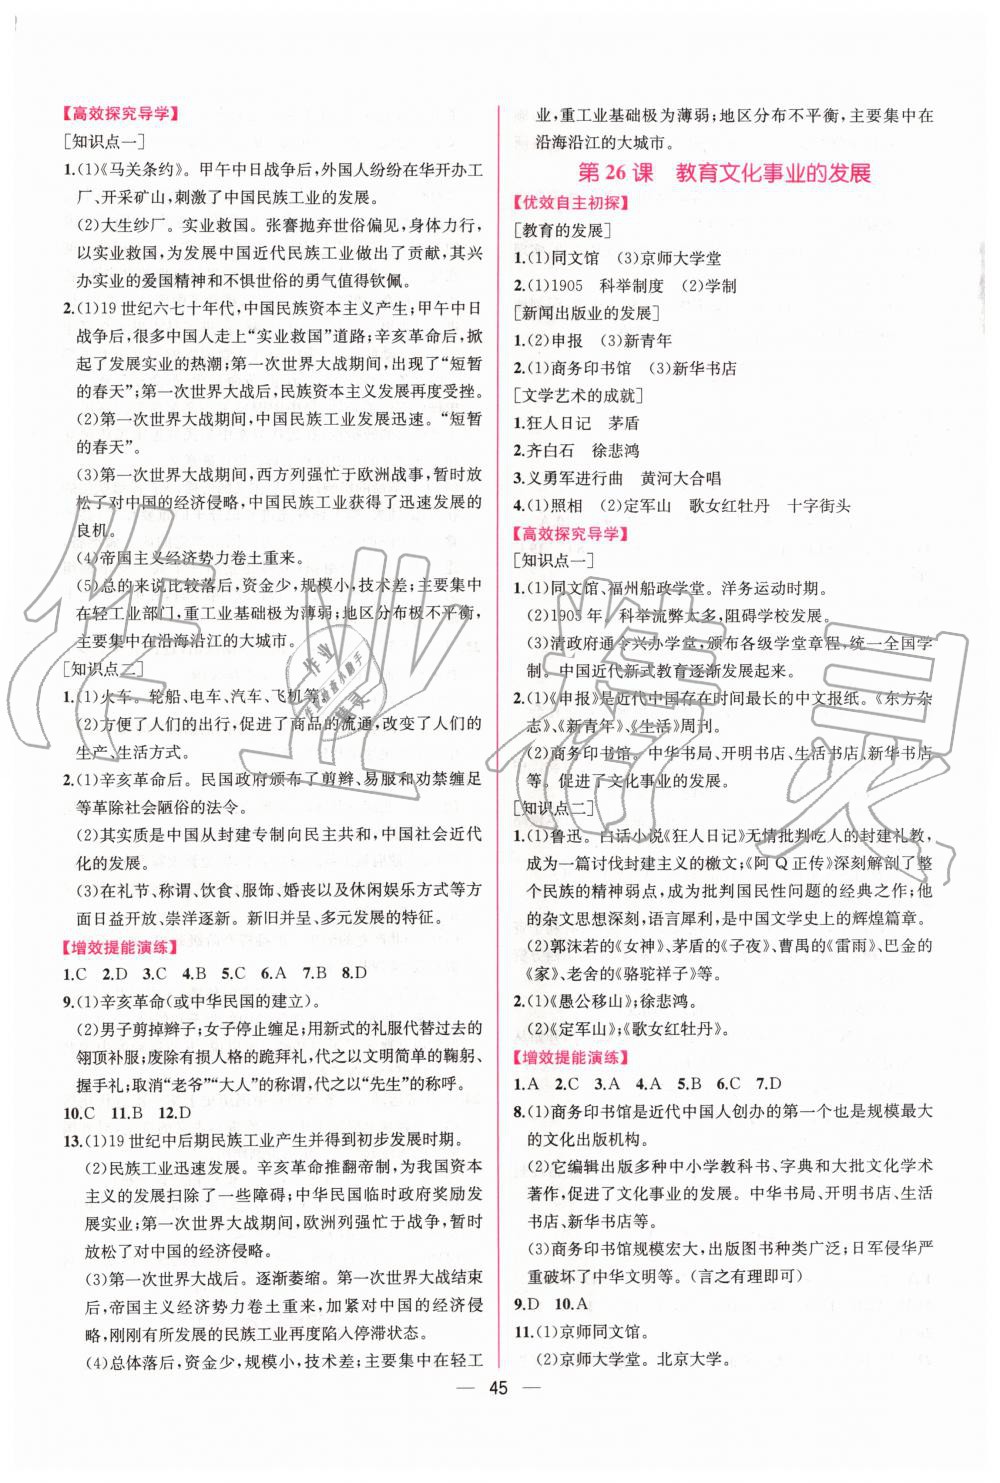 【高效探究导学】
[知识点一]
1.(1)《马关条约》。甲午中日战争后,外国人纷纷在华开办工
厂、开采矿山,刺激了中国民族工业的发展。
(2)大生纱厂。实业救国。张謇抛弃世俗偏见,身体力行,
以实业救国,为发展中国近代民族工业做出了贡献,其兴
办实业的爱国精神和不惧世俗的勇气值得钦佩。
2.(1)19世纪六七十年代,中国民族资本主义产生;甲午中日
战争后,很多中国人走上“实业救国”道路;辛亥革命后,掀
起了发展实业的热潮;第一次世界大战期间,出现了“短暂
的春天”;第一次世界大战后,民族资本主义发展再度受挫。
(2)第一次世界大战期间,中国民族工业发展迅速。“短暂
的春天”。
(3)第一次世界大战期间,西方列强忙于欧洲战事,暂时放
松了对中国的经济侵略,中国民族工业获得了迅速发展的
良机。
(4)帝国主义经济势力卷土重来。
(5)总的来说比较落后,资金少,规模小,技术差;主要集中
在轻工业部门,重工业基础极为薄弱;地区分布极不平衡,
主要集中在沿海沿江的大城市。
[知识点二]
1.(1)火车、轮船、电车、汽车、飞机等。
(2)方便了人们的出行,促进了商品的流通,改变了人们的
生产、生活方式。
2.(1)辛亥革命后。民国政府颁布了剪辫、易服和劝禁缠足
等革除社会陋俗的法令。
(2)其实质是中国从封建专制向民主共和,中国社会近代
化的发展。
(3)在礼节、称谓、饮食、服饰、婚丧以及休闲娱乐方式等方
面日益开放、崇洋逐新。新旧并呈、多元发展的特征。
【增效提能演练】
1.C 2.D 3.C 4.B 5.C 6.A 7.B 8.D
9.(1)辛亥革命(或中华民国的建立)。
(2)男子剪掉辫子;女子停止缠足;用新式的礼服代替过去的
翎顶补服;废除有损人格的跪拜礼,代之以文明简单的鞠躬、
握手礼;取消“老爷”“大人”的称谓,代之以“先生”的称呼。
10.C 11.B 12.D
13.(1)19世纪中后期民族工业产生并得到初步发展时期。
(2)民族工业迅速发展。辛亥革命推翻帝制,为我国资本
主义的发展扫除了一些障碍;中华民国临时政府奖励发
展实业;第一次世界大战期间,欧洲列强忙于战争,暂时
放松了对中国的经济侵略。
(3)第一次世界大战后。逐渐萎缩。第一次世界大战结束
后,帝国主义经济势力卷土重来,加紧对中国的经济侵
略,刚刚有所发展的民族工业再度陷入停滞状态。
(4)总体落后,资金少,规模小,技术差;主要集中在轻工
业,重工业基础极为薄弱;地区分布不平衡,主要集中在
沿海沿江的大城市。
第26课 教育文化事业的发展
【优效自主初探】
[教育的发展]
1.(1)同文馆 (3)京师大学堂
2.(1)1905 科举制度 (2)学制
[新闻出版业的发展]
1.(2)申报 (3)新青年
2.(1)商务印书馆 (3)新华书店
[文学艺术的成就]
1.狂人日记 茅盾
2.齐白石 徐悲鸿
3.义勇军进行曲 黄河大合唱
4.(1)照相 (2)定军山 歌女红牡丹 十字街头
【高效探究导学】
[知识点一]
1.(1)同文馆、福州船政学堂。洋务运动时期。
(2)1905年。科举流弊太多,阻碍学校发展。
(3)清政府通令兴办学堂,颁布各级学堂章程,统一全国学
制。中国近代新式教育逐渐发展起来。
2.(1)《申报》是近代中国存在时间最长的中文报纸。《东方杂
志》、《新青年》、《生活》周刊。
(2)商务印书馆。中华书局、开明书店、生活书店、新华书店
等。促进了文化事业的发展。
[知识点二]
1.(1)鲁迅。白话小说《狂人日记》无情批判吃人的封建礼教,
成为一篇讨伐封建主义的檄文;《阿Q正传》深刻解剖了整
个民族的精神弱点,成为批判国民性问题的经典之作;他
的杂文思想深刻,语言犀利,是中国文学史上的辉煌篇章。
(2)郭沫若的《女神》、茅盾的《子夜》、曹禺的《雷雨》、巴金的
《家》、老舍的《骆驼祥子》等。
2.(1)《愚公移山》;徐悲鸿。
(2)《定军山》;《歌女红牡丹》。
【增效提能演练】
1.A 2.C 3.A 4.A 5.B 6.C 7.D
8.(1)商务印书馆是近代中国人创办的第一个也是规模最大
的文化出版机构。
(2)它编辑出版多种中小学教科书、字典和大批文化学术
著作,促进了文化事业的发展。中华书局、开明书店、生活
书店、新华书店等。
(3)商务印书馆规模宏大,出版图书种类广泛;日军侵华严
重破坏了中华文明等。(言之有理即可)
9.D 10.A
11.(1)京师同文馆。
(2)京师大学堂。北京大学。
— 45 —
作业精灵